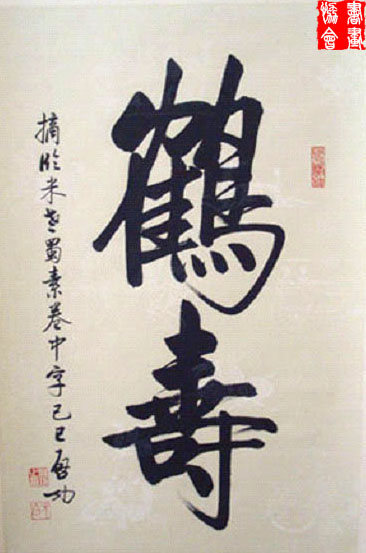 書畫
協會
鶴壽
摘臨米老蜀素卷中字己巳啓功